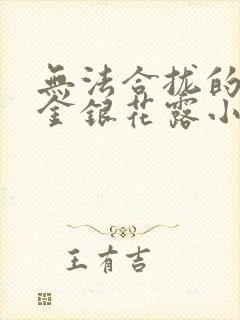 無法合拢的
金銀花露小
王有吉